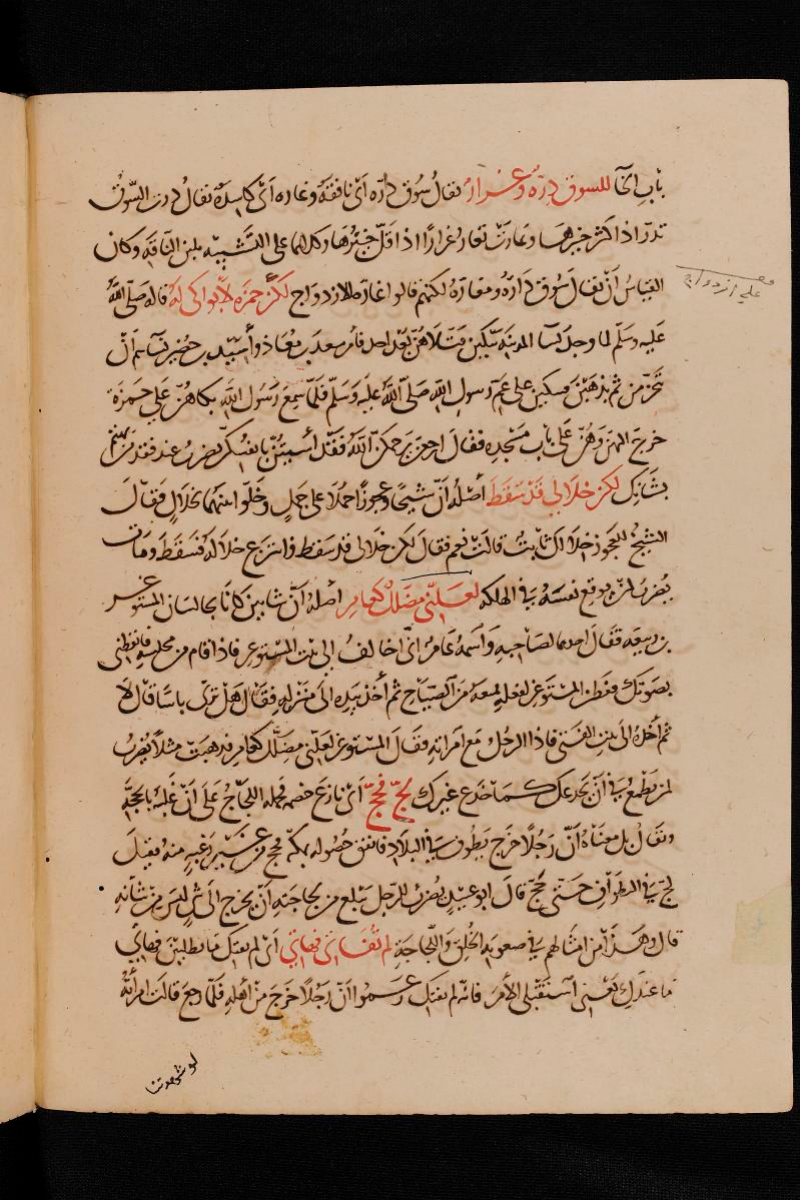 باب الخا للسوق درة وغرار يقال سوق دارّة أي نافقة وغارة أي كاسدة يقال درت السوق
تدرّ اذا كثر خيرها وغارت تغار غرارًا اذا قل خيرها وكلاهما على التشبيه بلبن الناقة وكان
القياس أن يقال سوق دارّة ومغارّة لكنهم قالوا غارّة للازدواج لكن حمزة لا بواكي له قاله صلى الله
عليه وسلم لما وجد نسا المدينة يبكين قتلاهن بعد احد فأمر سعد بن معاذ وأسيد بن حضير نسآهم أن
تحزمن ثم يذهبن ويبكين على عم رسول الله صلى الله عليه وسلم فلما سمع رسول الله بكاهن على حمزة
خرج اليهن وهن على باب مسجده فقال ارجعن يرحمكن الله فقد أسيتن بانفسكن يضرب عند فقد من يهتم
بشانك لكن خلالي قد سقط أصله أن شيخًا وعجوزًا حملا على جمل وخلوا بينهما بخلال فقال
الشيخ للعجوز خلالك ثابت قالت نعم فقال لكن خلالي قد سقط فانتزع خلاله فسقط ومات
يضرب لمن يوقع نفسه في الهلكة لعلني مضلل كعامر أصله أن شابين كانا يجالسان المستوغر
بن ربيعة فقال احدهما لصاحبه واسمه عامر اني اخالف الى بيت المستوغر فاذا قام من مجلسه فايقظني
بصوتك ففطن المستوغر لفعله فمنعه من الصياح ثم أخذ بيده الى منزله فقال هل ترى باسًا قال لا
ثم أخذه الى بيت الفتى فاذا الرجل مع امرأته فقال المستوغر لعلني مضلل كعامر فذهبت مثلا يضرب
لمن يطمع في أن يخدعك كما خدع غيرك لجّ فحجّ أي نازع خصمه فحمله اللجاج على أن غلبه بالحجة
ويقال بل معناه أن رجلا خرج يطوف في البلاد فاتفق حصوله بمكة فحج من غير رغبة منه فقيل
لج في الطواف حتى حج قال ابو عبيد يضرب للرجل يبلغ من لجاجته أن يخرج الى شي ليس من شأنه
قال وهذا من امثالهم في صعوبة الخلق واللجاجة لم تفاتي فهاتي أي لم يفتك ما تطلبين فهاتي
ما عندك يعني استقبلي الأمر فانه لم يفتك زعموا ان رجلا خرج من أهله فلما رجع قالت امرأته
على ازدواج
لو شهدتنا